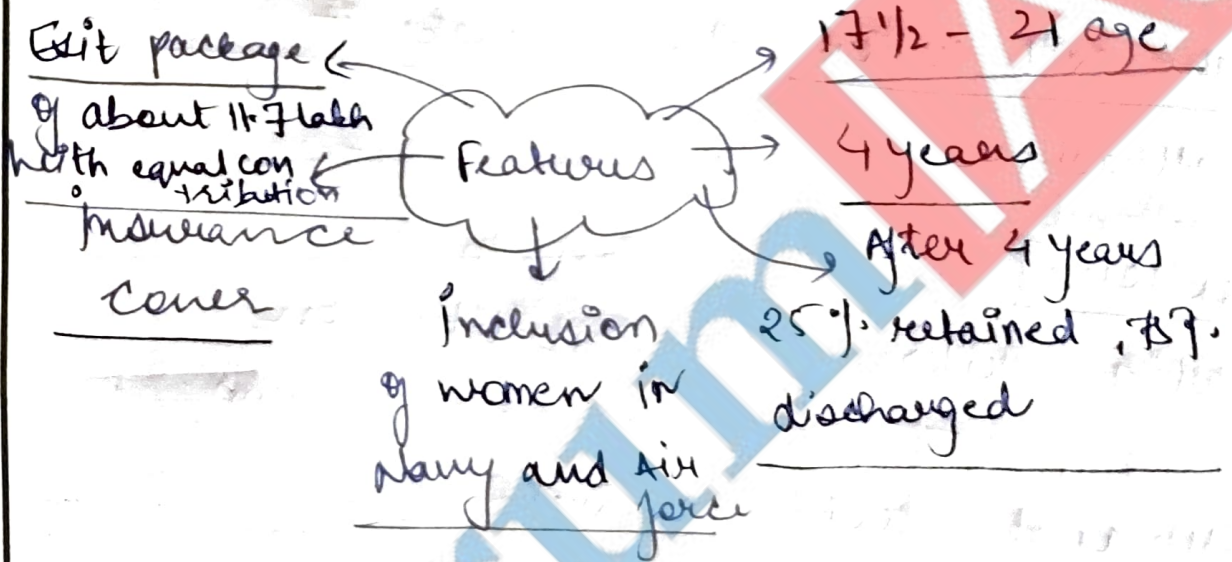 Exit package
of about 11.7 lakh
with equal con
tribution
insurance
cover
Features
17 1/2 - 21 age
4 years
After 4 years
25% retained, 75%
discharged
inclusion
of women in
Navy and Air
force